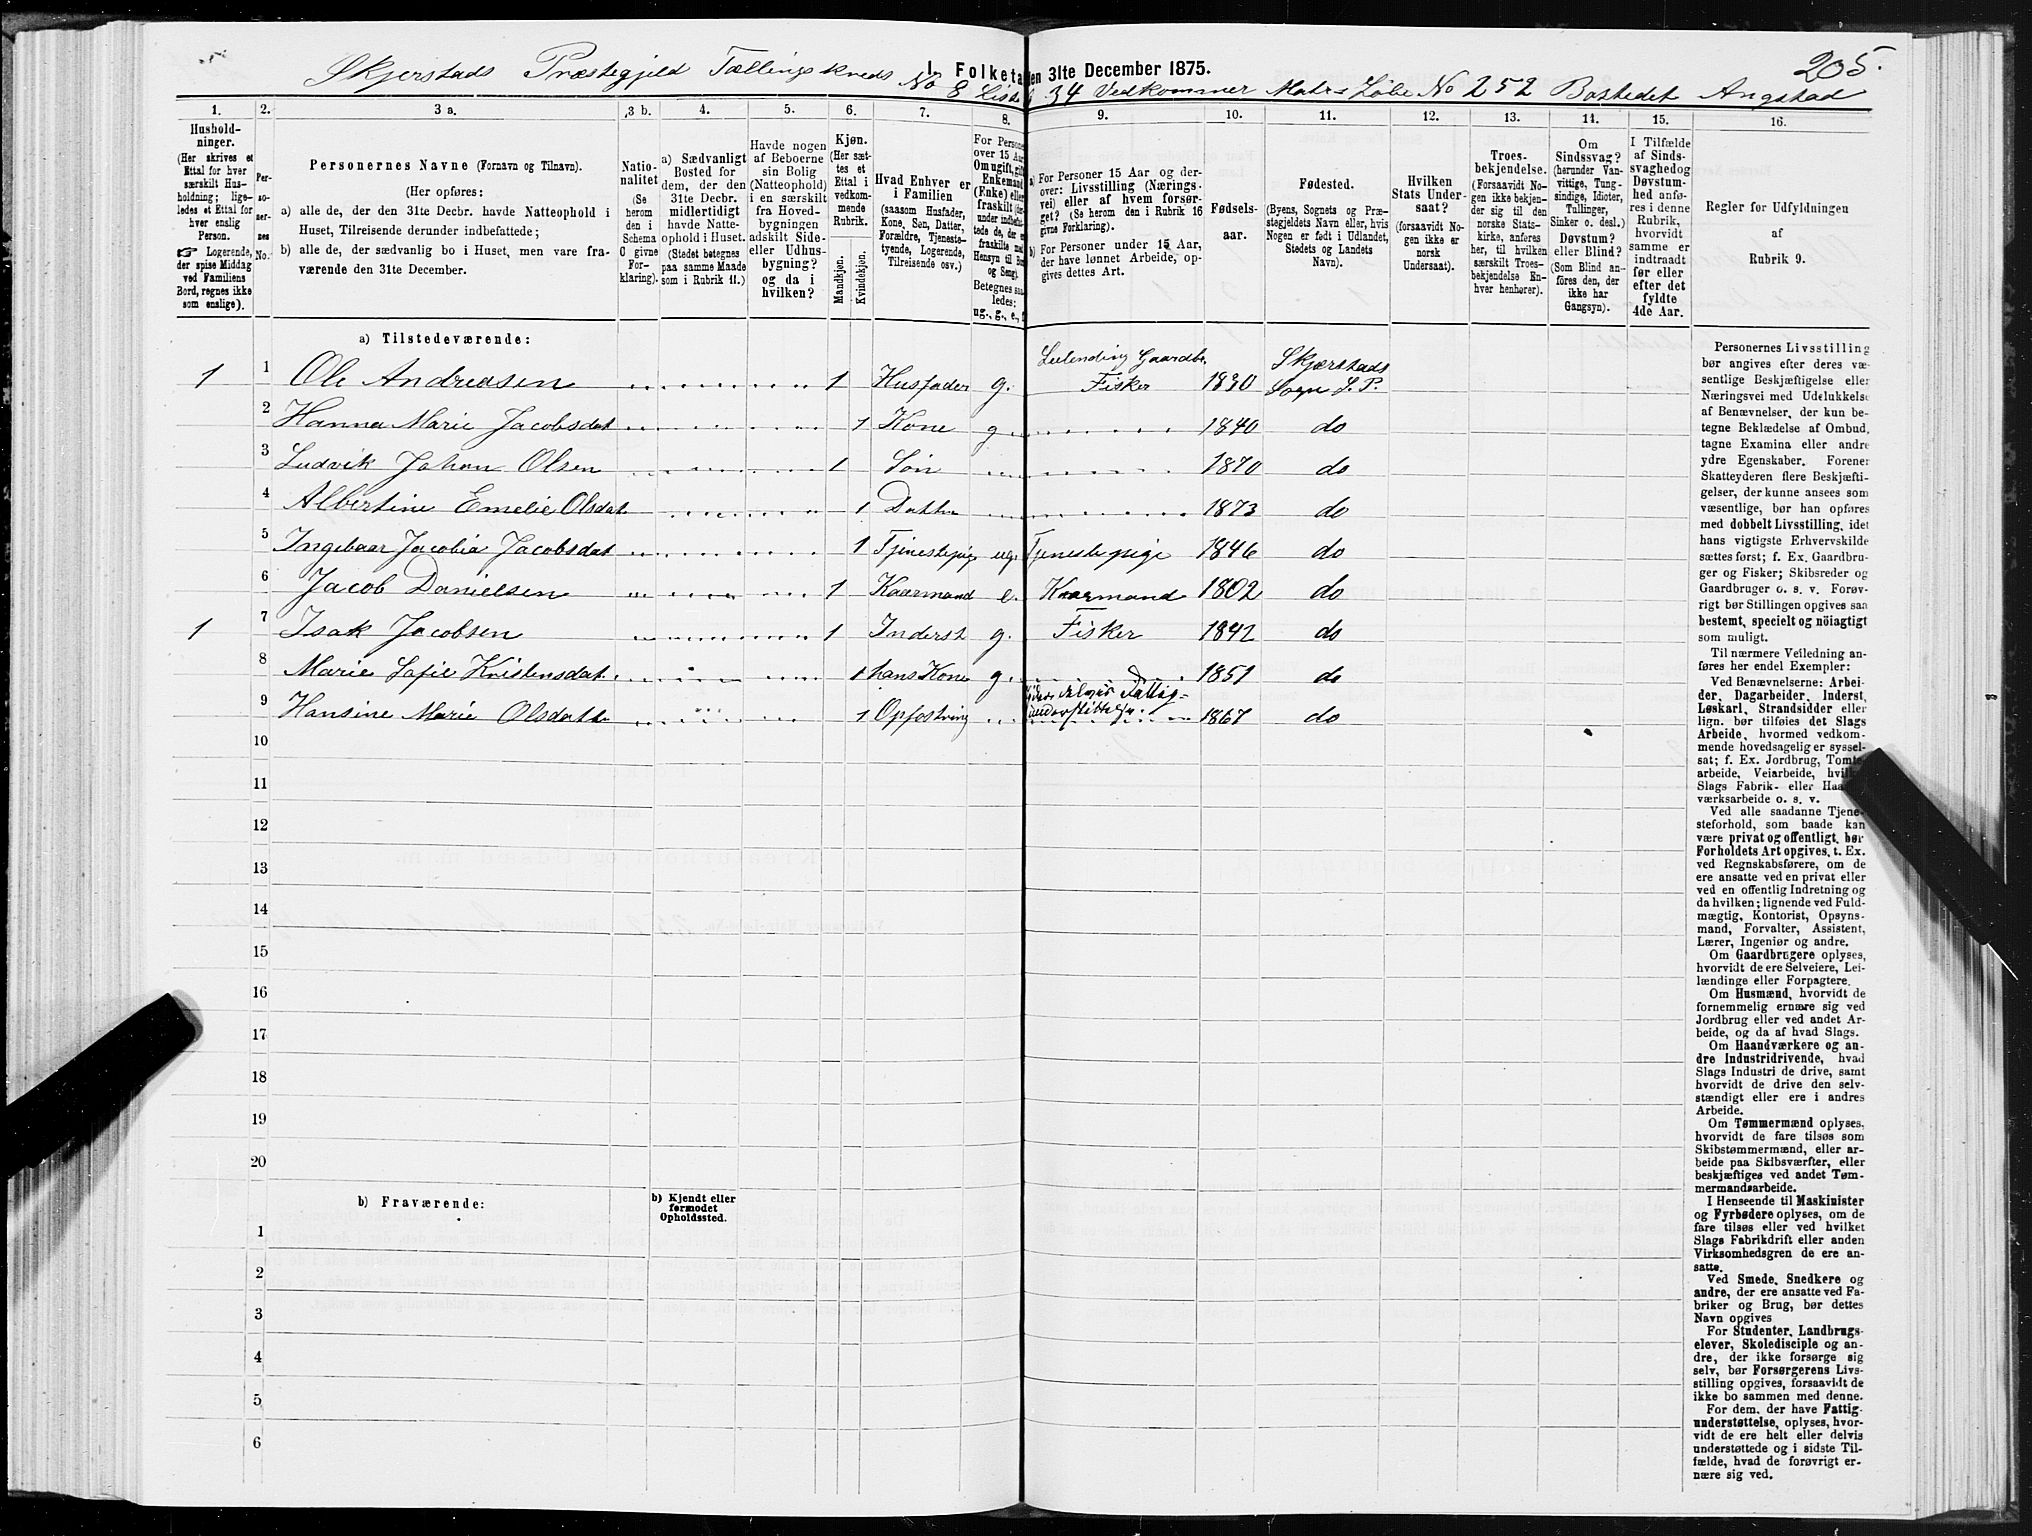 205.
Skjerstads Præstegjeld Tællingskreds No 8 Liste 34 Vedkommer Matr. Løbe No 252 Bostedet Angstad
I. Folketa en 31te December 1875.
1. 2. 3 a. 3 b. 4. 5. 6. 7. 8. 9. 10. 11. 12. 13. 14. 15. 16.
Hushold-
ninger.
(Her skrives et
Ettal for hver
særskilt Hus-
holdning; lige-
ledes et Ettal for
hver enslig
Person.
☞ Logerende,
der spise Middag
ved Familiens
Bord, regnes ikke
som enslige).
Per-
so-
ner-
nes
No.
Personernes Navne (Fornavn og Tilnavn).
(Her opføres:
a) alle de, der den 31te Decbr. havde Natteophold i
Huset, Tilreisende derunder indbefattede;
b) alle de, der sædvanlig bo i Huset, men vare fra-
værende den 31te December.
Natio-
nalitet
(Se
herom
den i
Schema
O givne
For-
klaring).
a) Sædvanligt
Bosted for
dem, der den
31te Decbr.
midlertidigt
havde Natte-
ophold i Huset.
(Stedet betegnes
paa samme Maade
som i Rubrik 11.)
Havde nogen
af Beboerne
sin Bolig
(Natteophold)
i en særskilt
fra Hoved-
bygningen
adskilt Side-
eller Udhus-
bygning?
og da i
hvilken?
Kjøn.
(Her sæt-
tes et
Ettal i
vedkom-
mende
Rubrik.
Mandkjøn.
Kvindekjøn.
Hvad Enhver er
i Familien
(saasom Husfader,
Kone, Søn, Datter,
Forældre, Tjeneste-
tyende, Logerende,
Tilreisende osv.)
For Persone
over 15 Aar
Om ugift, gift
Enkemand
(Enke) eller
fraskilt
Betegnes saa-
ledes:
ug., g., e., f.
a) For Personer 15 Aar og der-
over: Livsstilling (Nærings-
vei) eller af hvem forsør-
get? (Se herom den i Rubrik 16
givne Forklaring).
b) For Personer under 15 Aar,
der have lønnet Arbeide, op-
gives dettes Art.
Fødsels-
aar.
Fødested.
(Byens, Sognets og Præ-
stegjeldets Navn eller, hvis
Nogen er født i Udlandet,
Stedets og Landets
Navn).
Hvilken
Stats Under-
saat?
(forsaavidt No-
gen ikke er
norsk
Undersaat).
Troes-
bekjendelse.
(Forsaavidt No-
gen ikke bekjen-
der sig til den
norske Stats-
kirke, anføres
her, til hvilken
særskilt Troes-
bekjendelse En-
hver henhører).
Om
Sindssvag?
(herunder Van-
vittige, Tung-
sindige, Idioter,
Tullinger,
Sinker o. desl.)
Døvstum?
eller Blind?
(Som Blind an-
føres den, der
ikke har
Gangsyn).
I Tilfælde
af Sinds-
svaghed og
Døvstum-
hed anfø-
res i denne
Rubrik,
hvorvidt
samme er
indtraadt
før eller
efter det
fyldte
4de Aar.
Regler for Udfyldningen
af
Rubrik 9.
a) Tilstedeværende:
1 1 Ole Andreasen 1 Husfader g. Leilending Gaardbr. Fisker 1830 Skjærstads Sogn S. P.
2 Hanna Marie Jacobsdat 1 Kone g 1840 do
3 Ludvik Johan Olsen 1 Søn 1870 do
4 Albertine Emelie Olsdat 1 Datter 1873 do
5 Ingebaar Jacobia Jacobsdat 1 Tjenestepige ug. Tjenestepige 1846 do
6 Jacob Danielsen 1 Kaarmand e. Kaarmand 1802 do
1 7 Isak Jacobsen 1 Inderst g. Fisker 1842 do
8 Marie Sofie Kristensdat. 1 hans Kone g. 1851 do
9 Hansine Marie Olsdatte 1 Opfostring delvis Fattig-
understittelse. 1867 do
10
11
12
13
14
15
16
17
18
19
20
b) Fraværende:
b) Kjendt eller
formodet
Opholdssted.
1
2
3
4
5
6
Personernes Livsstilling
bør angives efter deres væ-
sentlige Beskjæftigelse eller
Næringsvei med Udelukkelse
af Benævnelser, der kun be-
tegne Beklædelse af Ombud,
tagne Examina eller andre
ydre Egenskaber. Forener
Skatteyderen flere Beskjæfti-
gelser, der kunne ansees som
væsentlige, bør han opføres
med dobbelt Livsstilling, idet
hans vigtigste Erhvervskilde
sættes først; f. Ex. Gaardbru-
ger og Fisker; Skibsreder og
Gaardbruger o. s. v. Forøv-
rigt bør Stillingen opgives saa
bestemt, specielt og nøiagtigt
som muligt.
Til nærmere Veiledning an-
føres her endel Exempler:
Ved Benævnelserne: Arbei-
der, Dagarbeider, Inderst,
Løskarl, Strandsidder eller
lign. bør tilføies det Slags
Arbeide, hvormed vedkom-
mende hovedsagelig er syssel-
sat; f. Ex. Jordbrug, Tomte-
arbeide, Veiarbeide, hvilke
Slags Fabrik- eller Haa
værksarbeide o. s. v.
Ved alle saadanne Tjene-
steforhold, som baade kan
være privat og offentligt, bør
Forholdets Art opgives, t. Ex.
ved Regnskabsførere, om de
ere ansatte ved en privat eller
ved en offentlig Indretning og
da hvilken; lignende ved Fuld-
mægtig, Kontorist, Opsyns-
mand, Forvalter, Assistent,
Lærer, Ingeniør og andre.
Om Gaardbrugere oplyses,
hvorvidt de ere Selveiere, Lei-
lændinge eller Forpagtere.
Om Husmænd, hvorvidt de
fornemmelig ernære sig ved
Jordbrug eller ved andet Ar-
beide, og da af hvad Slags.
Om Haandværkere og an-
dre Industridrivende, hvad
Slags Industri de drive, samt
hvorvidt de drive den selv-
stændigt eller ere i andres
Arbeide.
Om Tømmermænd oplyses,
hvorvidt de fare tilsøs som
Skibstømmermænd, eller ar-
beide paa Skibsværfter, eller
beskjæftiges ved andet Tøm-
mermandsarbeide.
I Henseende til Maskinister
og Fyrbødere oplyses, om de
fare tilsøs eller ved hvilket
Slags Fabrikdrift eller anden
Virksomhedsgren de ere an-
satte.
Ved Smede, Snedkere og
andre, der ere ansatte ved Fa-
briker og Brug, bør dettes
Navn opgives
For Studenter, Landbrugs-
elever, Skoledisciple og an-
dre, der ikke forsørge sig
selv, bør Forsørgerens Livs-
stilling opgives, forsaavidt de
ikke bo sammen med denne.
For dem, der have Fattig-
understøttelse, oplyses, hvor-
vidt de ere helt eller delvis
understøttede og i sidste Til-
fælde, hvad de forøvrigt er-
nære sig ved.